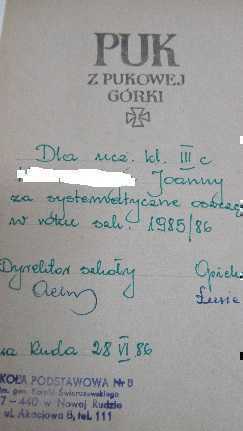 PUK
Z PUKOWEJ
GÓRKI
Dla ucz. kl. III c
Joanny
za systematyczne oszczę
w roku szk. 1985/86
Dyrektor szkoły Opiek
wa Ruda 28 VI 86
KOŁA PODSTAWOWA Nr 8
im. gen. Karola Świerczewskiego
7-440 w Nowej Rudzie
ul. Akacjowa 8, tel. 111